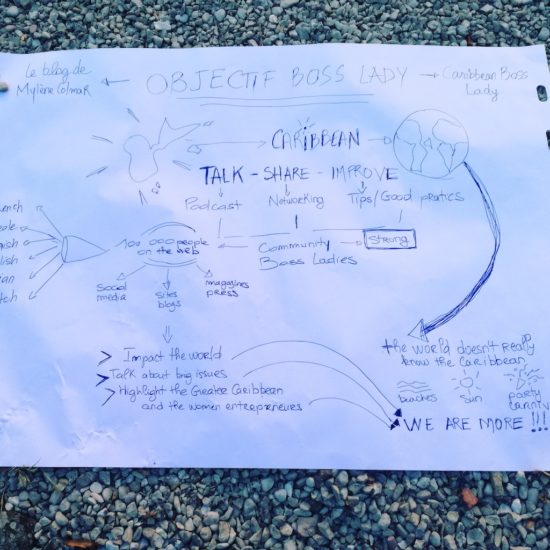 Le blog de
Mylène Colmar
OBJECTIF BOSS LADY
Caribbean Boss
Lady
CARIBBEAN
TALK - SHARE - IMPROVE
Podcast
Networking
Tips/Good pratics
100 000 people
on the web
Community
Boss Ladies
Strong
Social
media
Sites
blogs
magazines
press
Impact the world
Talk about big issues
Highlight the Greater Caribbean
and the women entrepreneurs
the world doesn't Really
know the Caribbean
beaches
sun
party
WE ARE MORE !!!